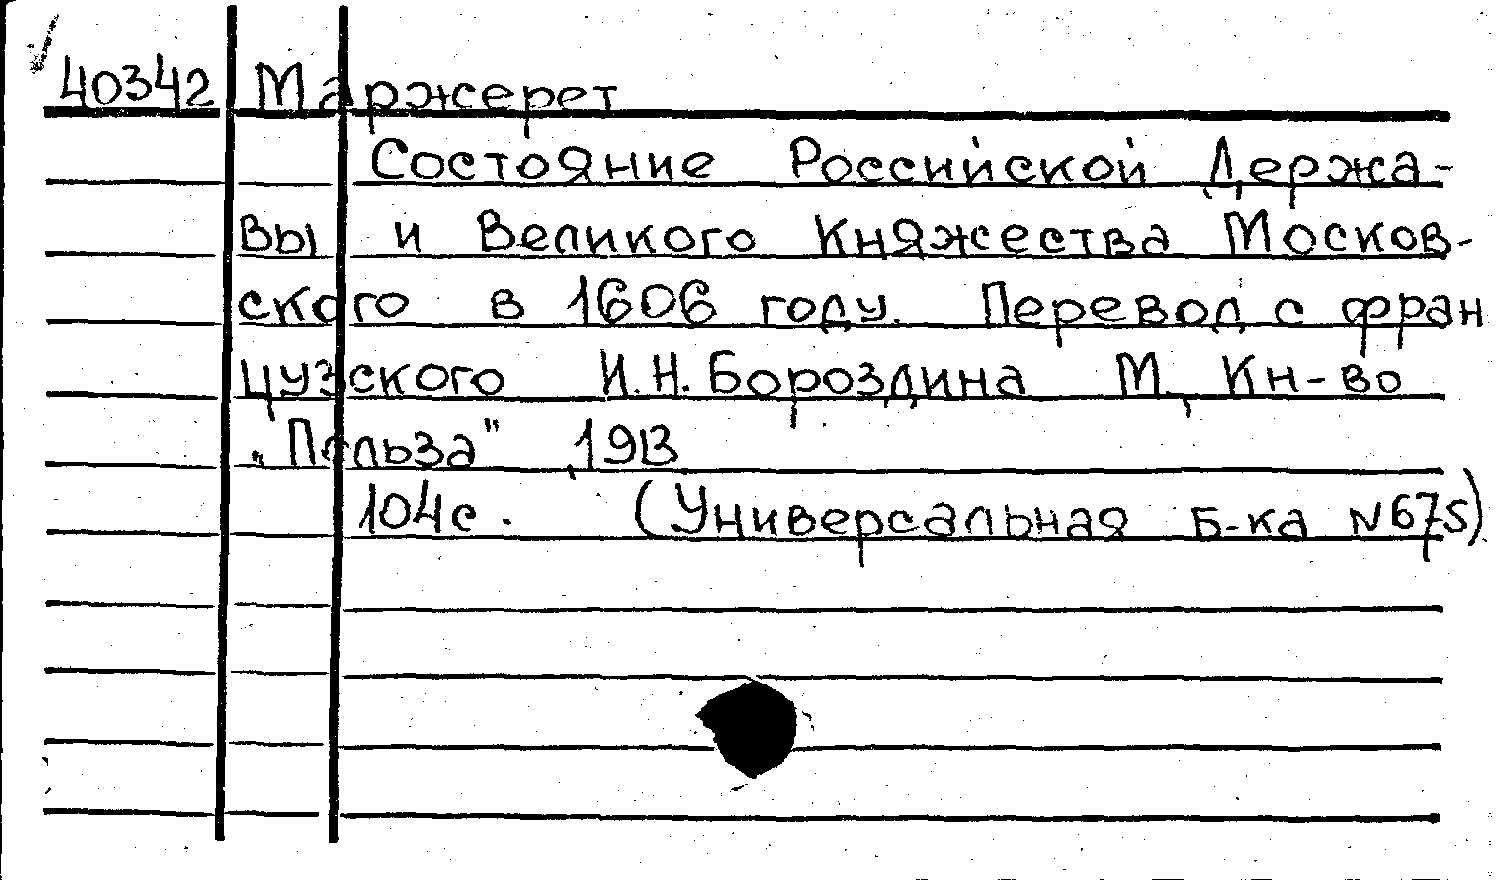 40342 Маржерет
Состояние Российской Держа-
вы и Великого Княжества Москов-
ского в 1606 году. Перевод с фран
цузского И.Н. Бороздина М., Кн-во
„Польза", 1913
104с. (Универсальная Б-ка N675)